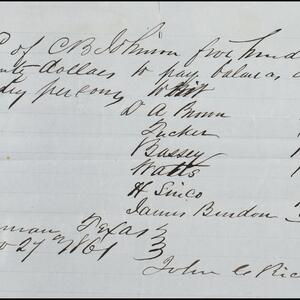 of C B Johnson five hund
dollars to pay balance
persons to wit
D A Brown
Tucker
Bassey
Watts
H Sinco
James Bendon
man Texas
27 1861
John C Ric